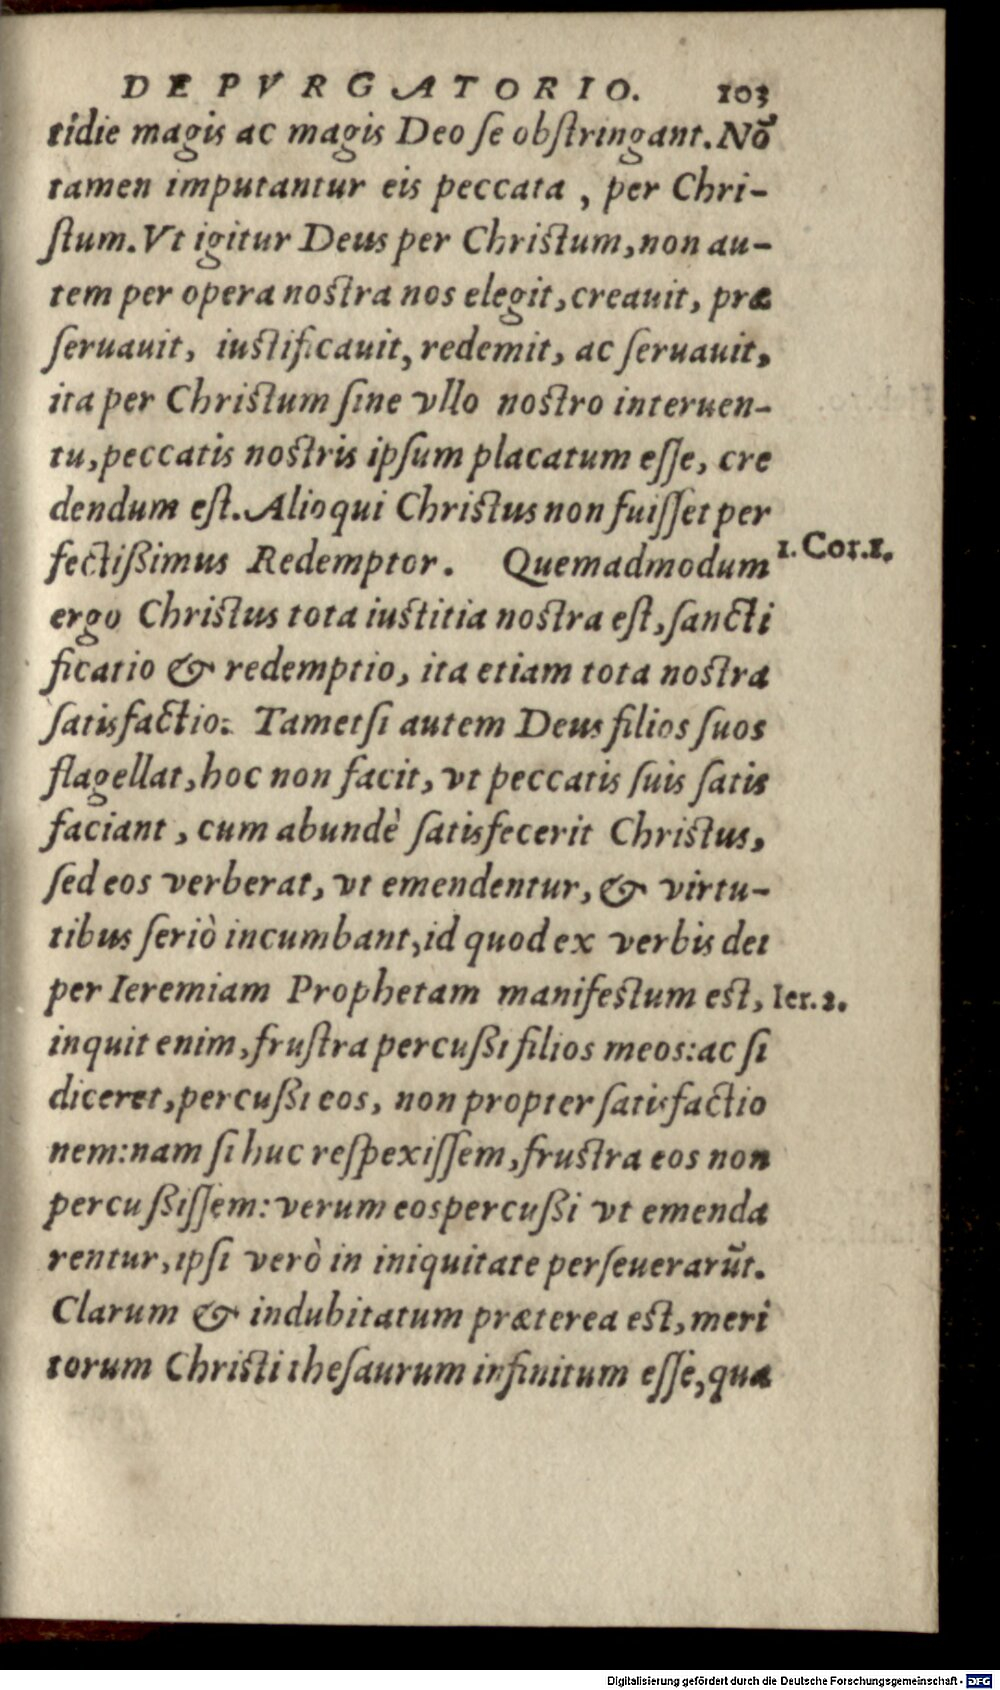 DE PVRGATORIO. 103
tidie magis ac magis Deo se obstringant. Nō
tamen imputantur eis peccata , per Chri-
stum. Vt igitur Deus per Christum, non au-
tem per opera nostra nos elegit, creauit, præ
seruauit, iustificauit, redemit, ac seruauit,
ita per Christum sine vllo nostro interuen-
tu, peccatis nostris ipsum placatum esse, cre
dendum est. Alioqui Christus non fuisset per
fectißimus Redemptor. Quemadmodum
1. Cor. 1.
ergo Christus tota iustitia nostra est, sancti
ficatio & redemptio, ita etiam tota nostra
satisfactio. Tametsi autem Deus filios suos
flagellat, hoc non facit, vt peccatis suis satis
faciant , cum abundè satisfecerit Christus,
sed eos verberat, vt emendentur, & virtu-
tibus seriò incumbant, id quod ex verbis dei
per Ieremiam Prophetam manifestum est,
Ier. 2.
inquit enim, frustra percußi filios meos: ac si
diceret, percußi eos, non propter satisfactio
nem: nam si huc respexissem, frustra eos non
percußissem: verum eos percußi vt emenda
rentur, ipsi verò in iniquitate perseuerarūt.
Clarum & indubitatum præterea est, meri
torum Christi thesaurum infinitum esse, qua
Digitalisierung gefördert durch die Deutsche Forschungsgemeinschaft - DFG